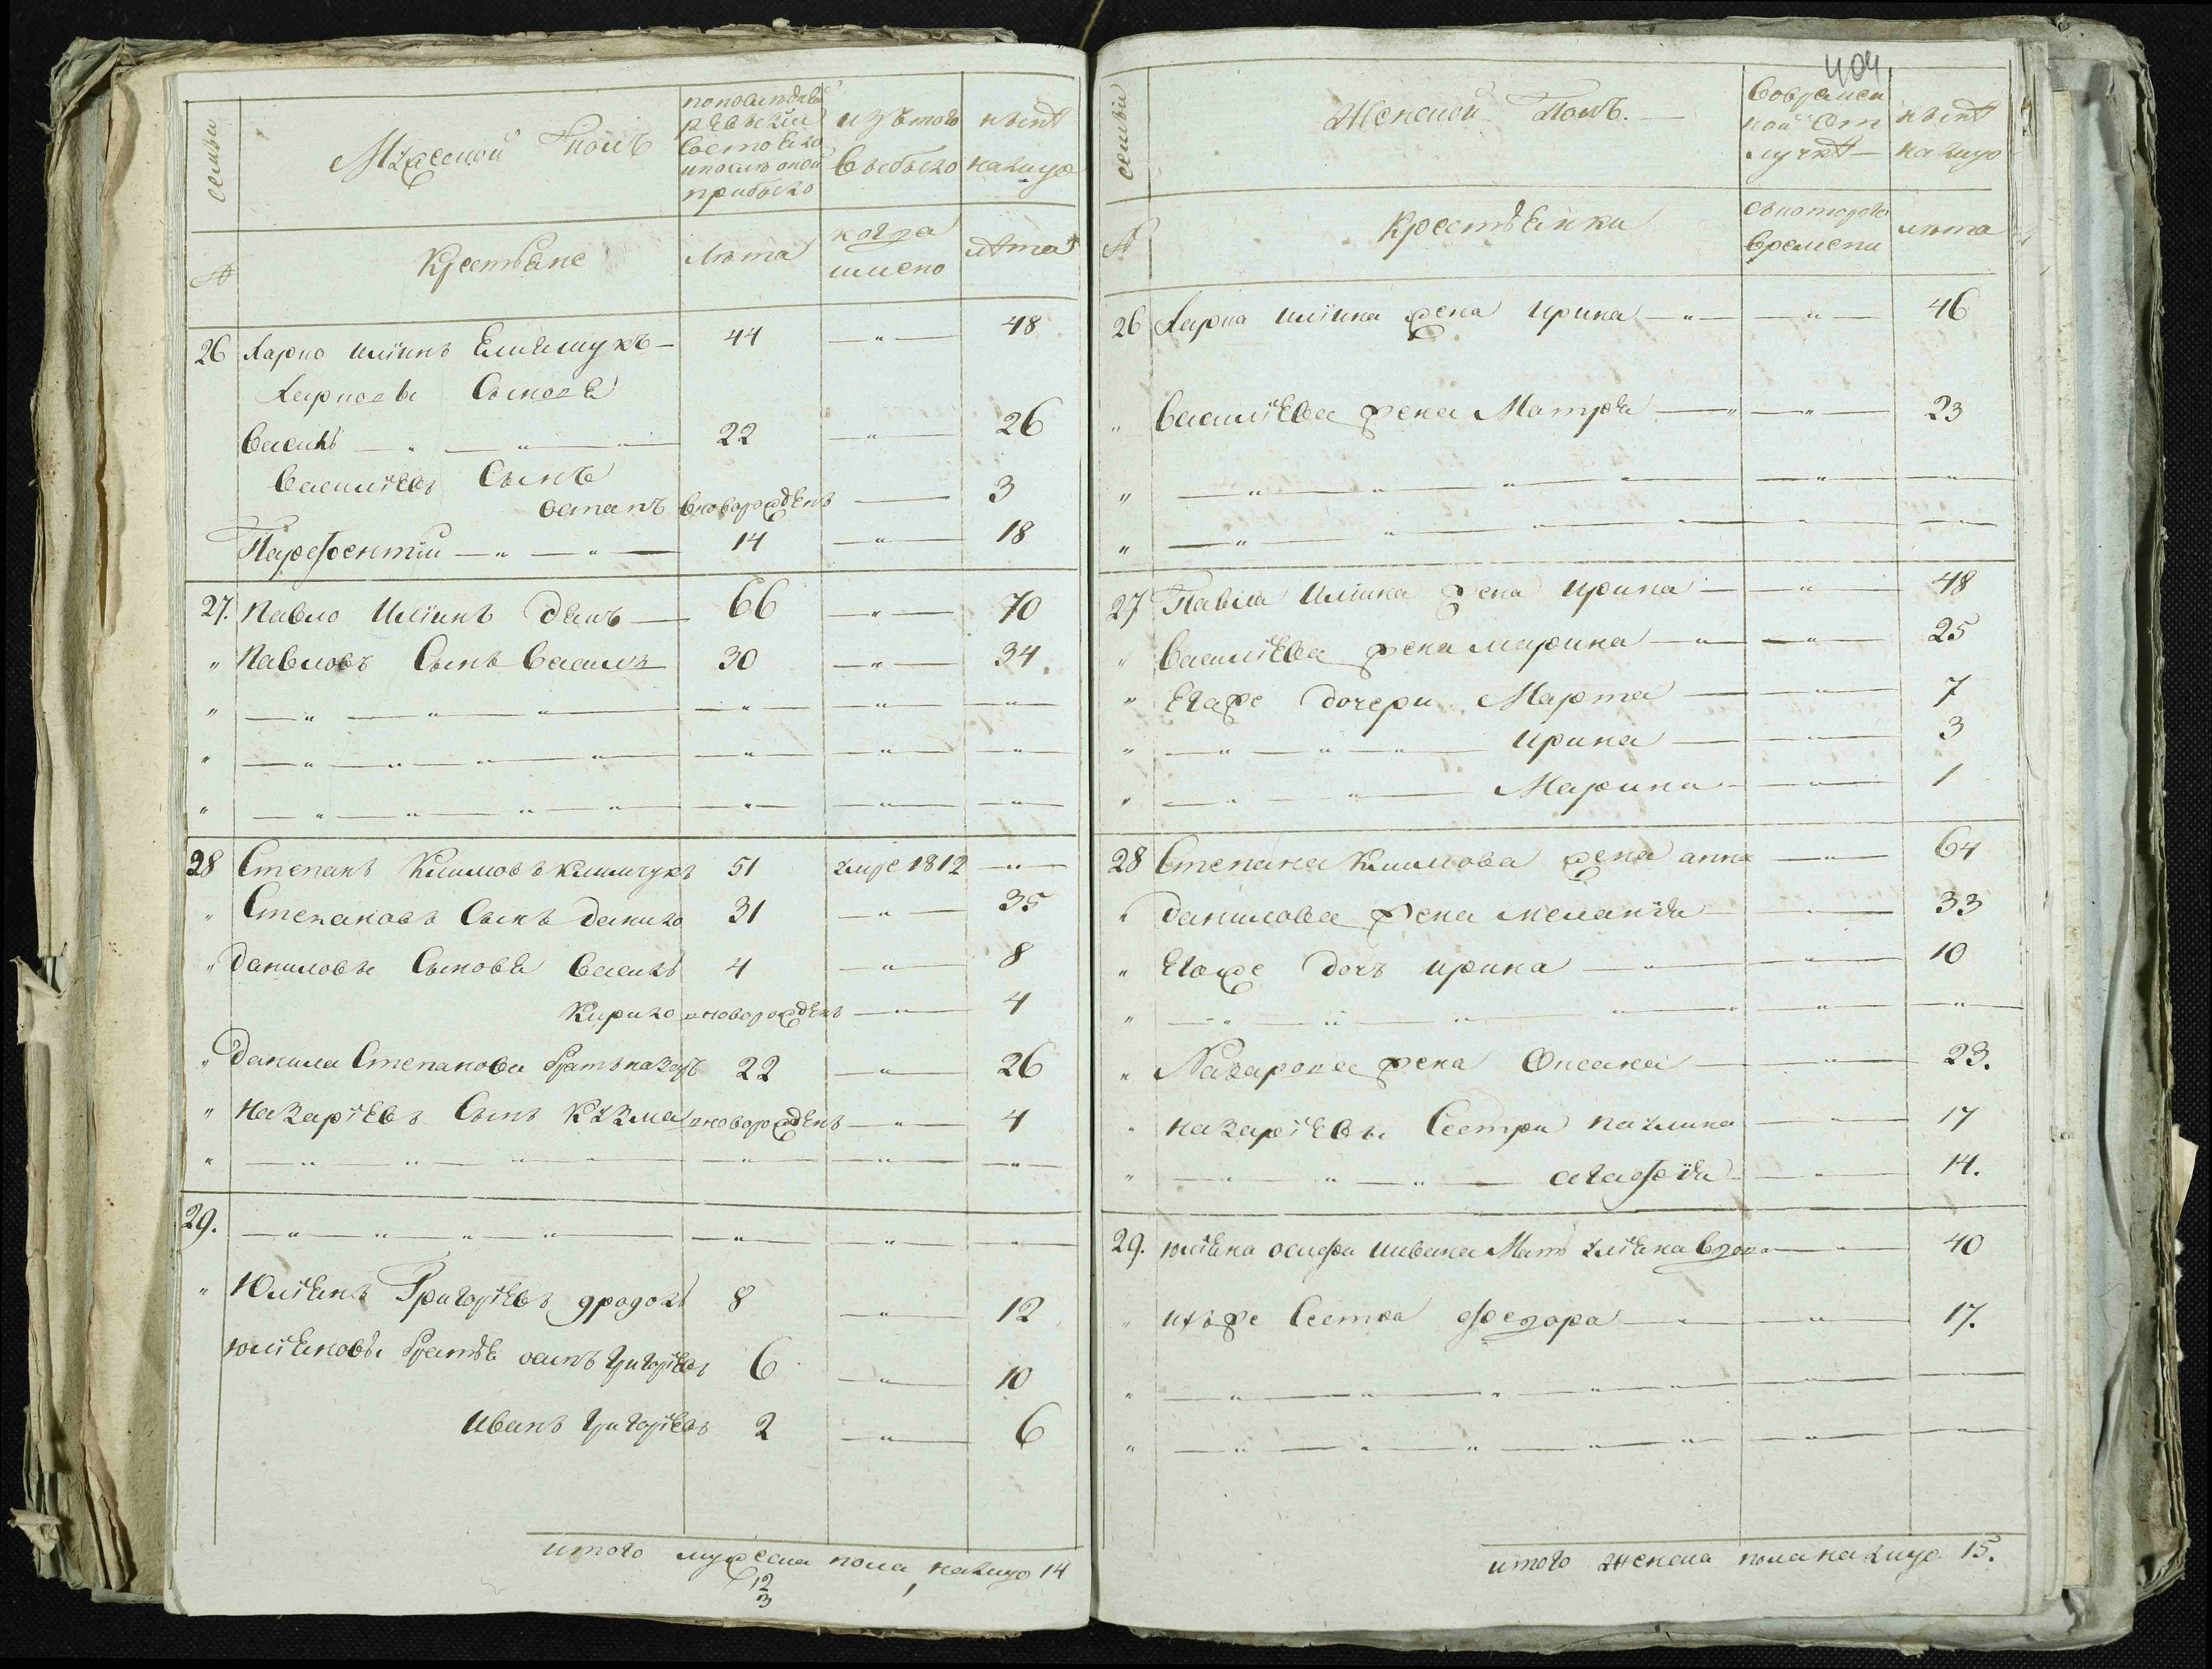 семьи
Мужеской полъ
по последней
ревизіи
состояло
и после оной
прибыло
изъ того
выбыло
ныне
налицо
№
Крестьяне
лѣта
когда
имено
лѣта
26 Карпо Иліинъ Климчукъ — 44 — „ — 48
Карповы Сынове
Василь — „ — 22 — „ — 26
Василіевъ Сынъ
Остапъ вноворожденъ — 3
Парфентій — „ — „ — 14 — „ — 18
27. Павло Иліинъ Данъ — 66 — „ — 70
„ Павловъ Сынъ Василь 30 — „ — 34.
28 Степанъ Климовъ Климчукъ 51 умре 1812 — „ —
„ Степановъ Сынъ Данило 31 — „ — 35
„ Даниловы Сыновя Василь 4 — „ — 8
Кирило вноворожденъ — „ — 4
„ Данила Степанова братъ Назаръ 22 — „ — 26
„ Назаріевъ Сынъ Кузма вноворожденъ — „ — 4
29. — „ — „ — „ — „ —
„ Юліянъ Григоріевъ 8 — „ — 12
Юліяновы братья Осипъ Григоріевъ 6 — „ — 10
Иванъ Григоріевъ 2 — „ — 6
итого мужеска пола налицо 14
12
3
404
семьи
Женской полъ. —
во времен
ной от
лучке
ныне
налицо
№
Крестьянки
съ которого
времени
лѣта
26 Карпа Иліина жена Ирина — „ — „ — 46
„ Василіева жена Матря — „ — „ — 23
27 Павла Иліина жена Ирина — „ — 48
„ Василіева жена Марина — „ — „ — 25
„ Егоже дочери Марта — „ — 7
„ — „ — „ — „ — Ирина — „ — 3
„ — „ — „ — Марина — „ — 1
28 Степана Климова жена анна — „ — 64
„ Данилова жена Меланія — „ — 33
„ Егоже дочь Ирина — „ — „ — 10
„ Назарова жена Оксана — „ — 23.
„ Назаріевы Сестри Паулина — „ — 17
„ — „ — „ — агафія — „ — 14.
29. Юліяна Осифа Ивана Мать Уліяна вдова — „ — 40
„ ихъже Сестра Федора — „ — „ — 17.
итого женска пола налицо 15.